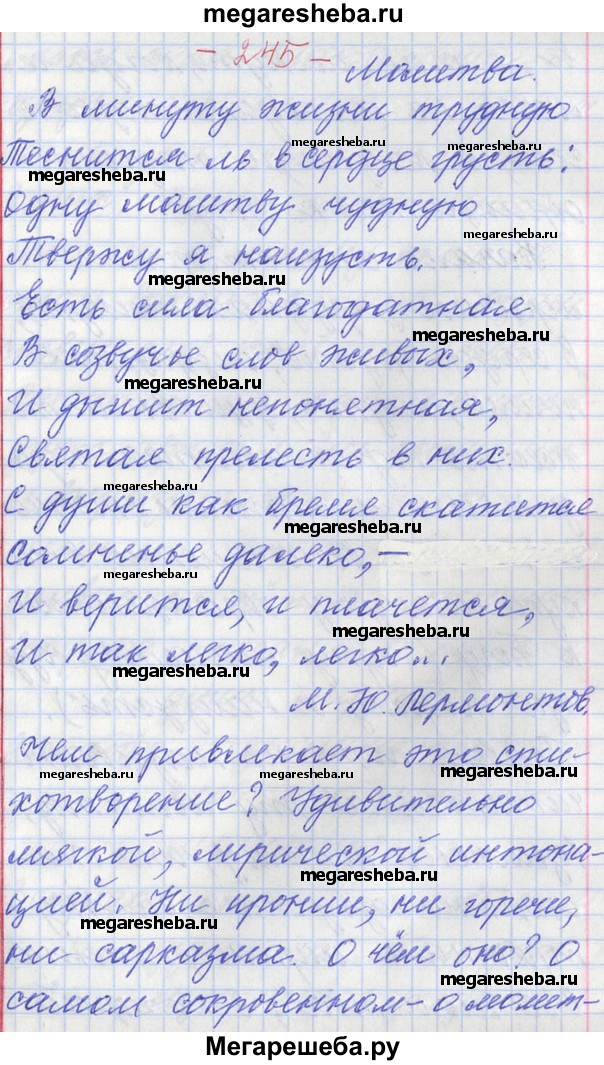 megaresheba.ru
- 245 -
Молитва.
В минуту жизни трудную
Теснится ль в сердце грусть:
megaresheba.ru
megaresheba.ru
одну молитву чудную
Твержу я наизусть.
megaresheba.ru
Есть сила благодатная
megaresheba.ru
В созвучье слов живых,
megaresheba.ru
И дышит непонятная,
Святая прелесть в них.
С души как бремя скатится
megaresheba.ru
Сомненье далеко, —
megaresheba.ru
И верится, и плачется,
megaresheba.ru
И так легко, легко...
megaresheba.ru
М. Ю. Лермонтов.
Чем привлекает это сти-
megaresheba.ru
megaresheba.ru
megaresheba.ru
хотворение? Удивительно
мягкой, лирической интона-
megaresheba.ru
цией. Ни иронии, ни горечи,
megaresheba.ru
ни сарказма. О чём оно? О
megaresheba.ru
самом сокровенном - о молит-
Мегарешеба.ру